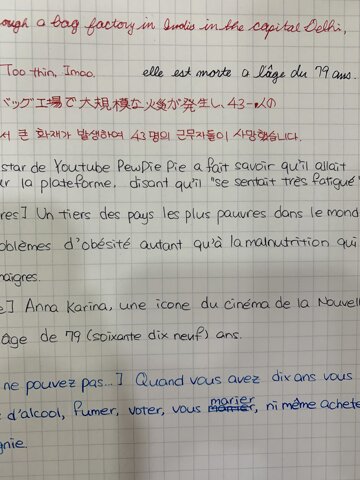 ough a bag factory in India in the capital Delhi,
Too thin, Imao. elle est morte a l'âge du 79 ans.
バッグ工場で大規模な火災が発生し、43人の
서 큰 화재가 발생하여 43명의 근무자들이 사망했습니다.
star de Youtube PewDie Pie a fait savoir qu'il allait
er la plateforme, disant qu'il "se sentait très fatigué"
res] Un tiers des pays les plus pauvres dans le mond
oblèmes d'obésité autant qu'à la malnutrition qui
maigres.
e] Anna Karina, une icone du cinéma de la Nouvell
âge de 79 (soixante dix neuf) ans.
ne pouvez pas...] Quand vous avez dix ans vous
d'alcool, fumer, voter, vous marier, ni même achete
gnie.